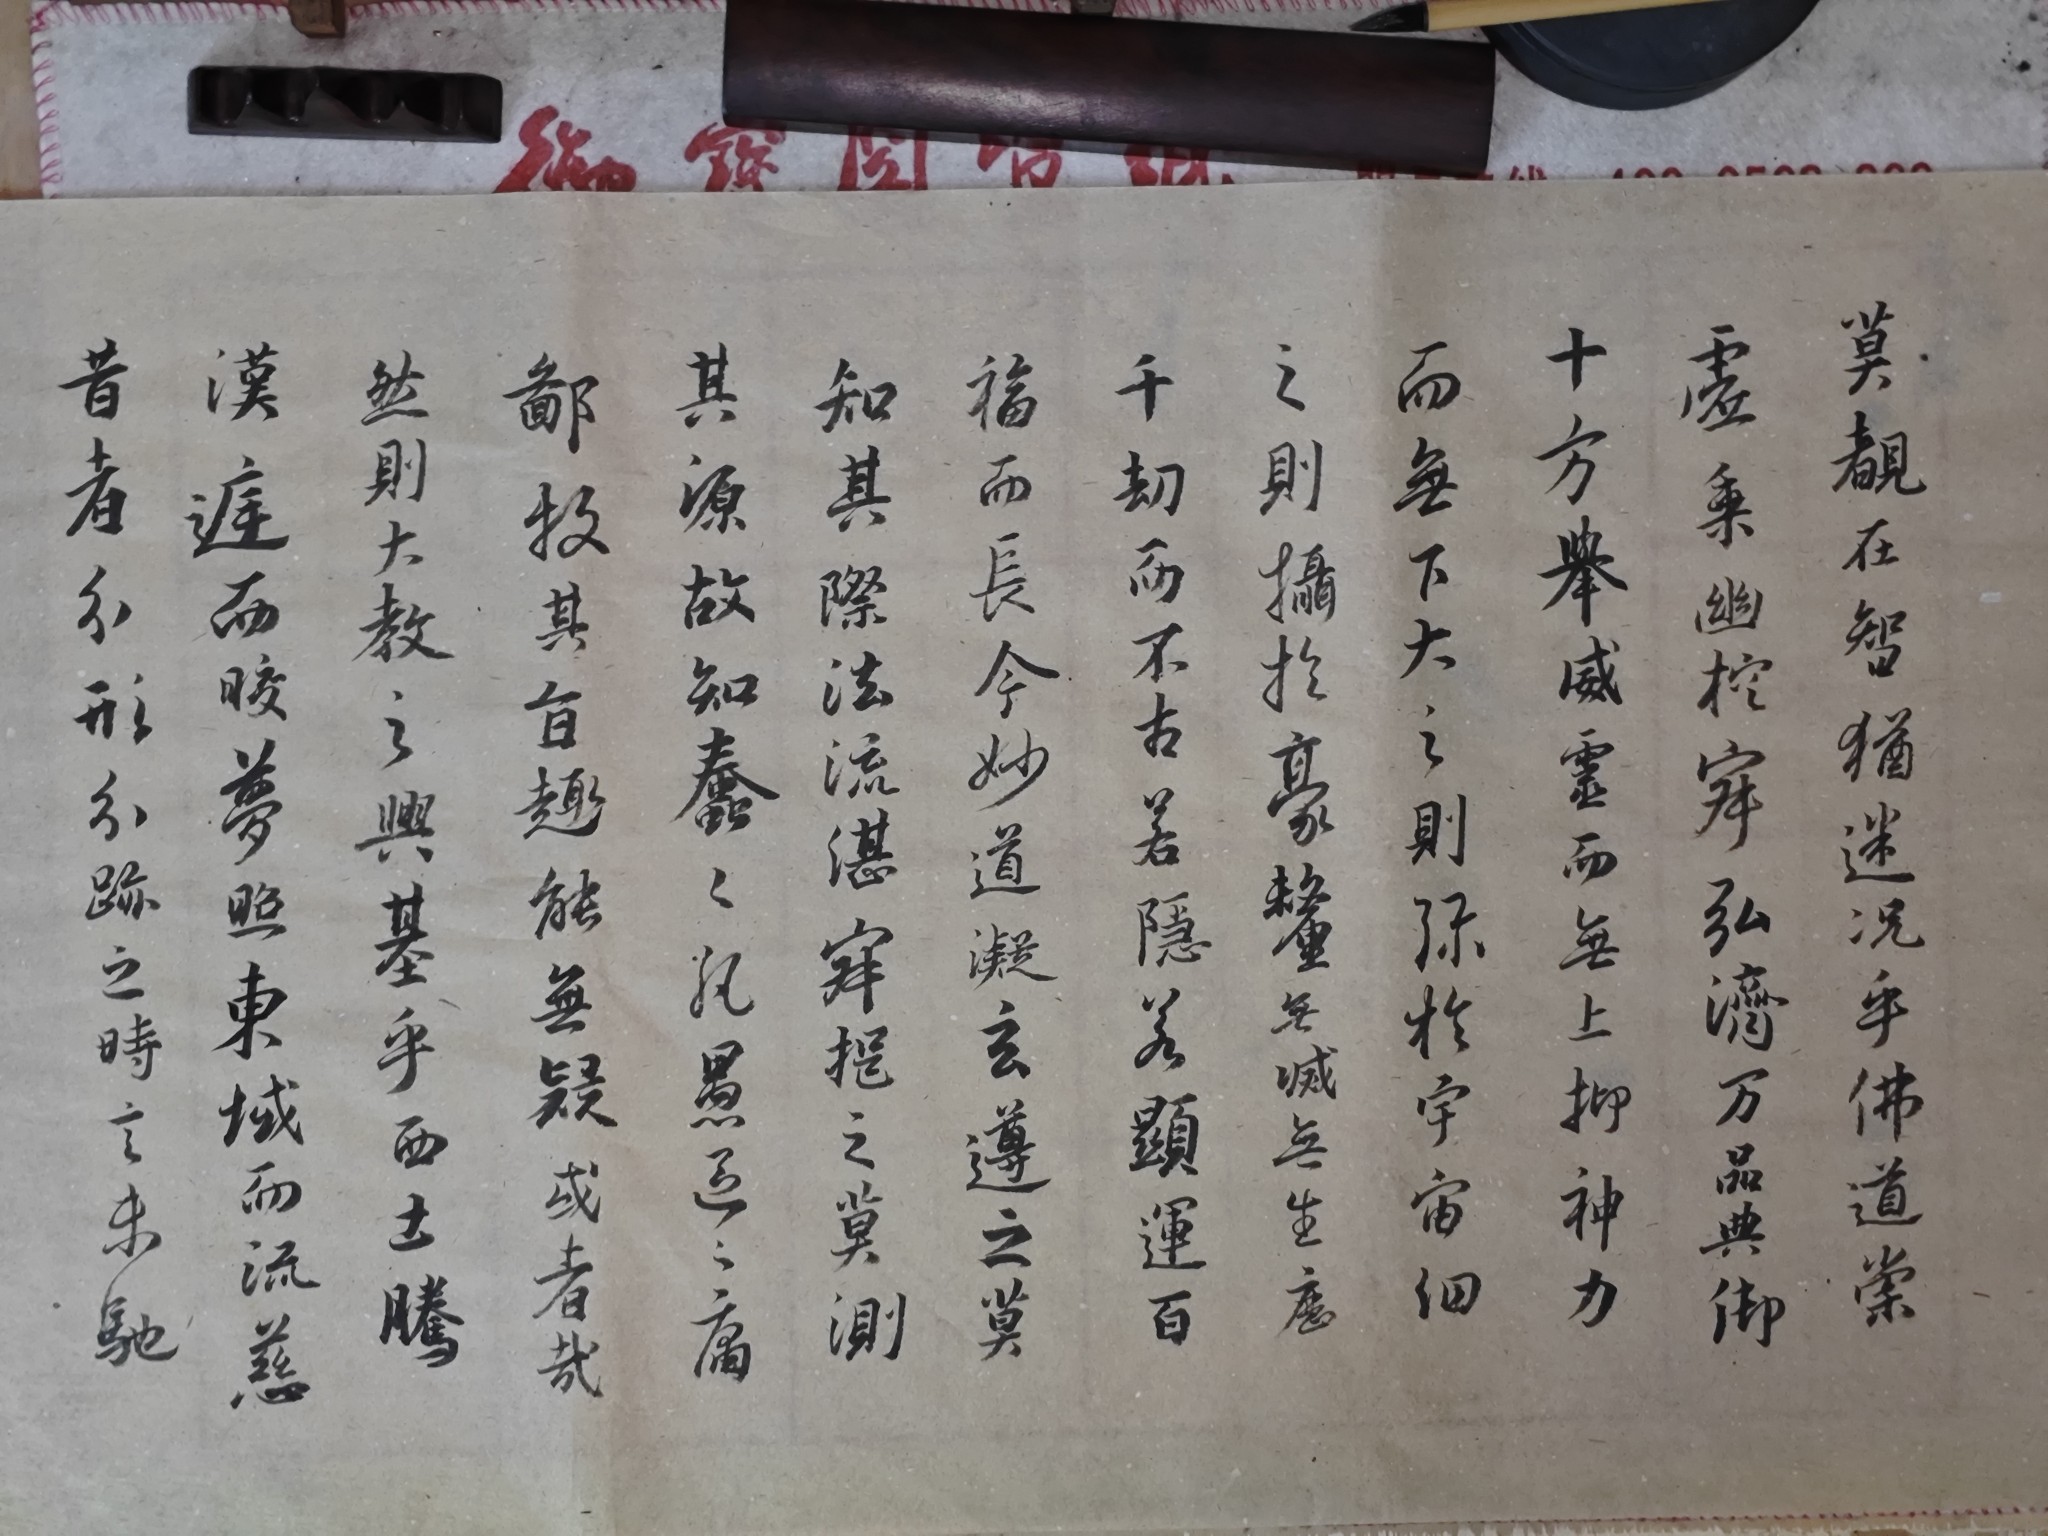 莫覩在智猶迷况乎佛道崇
虛乘幽控寂弘濟万品典御
十方舉威靈而無上抑神力
而無下大之則弥於宇宙細
之則攝於豪釐無滅無生歷
千劫而不古若隱若顯運百
福而長今妙道凝玄遵之莫
知其際法流湛寂挹之莫測
其源故知蠢〻凡愚區〻庸
鄙投其旨趣能無疑或者哉
然則大教之興基乎西土騰
漢庭而晈夢照東域而流慈
昔者分形分跡之時言未馳